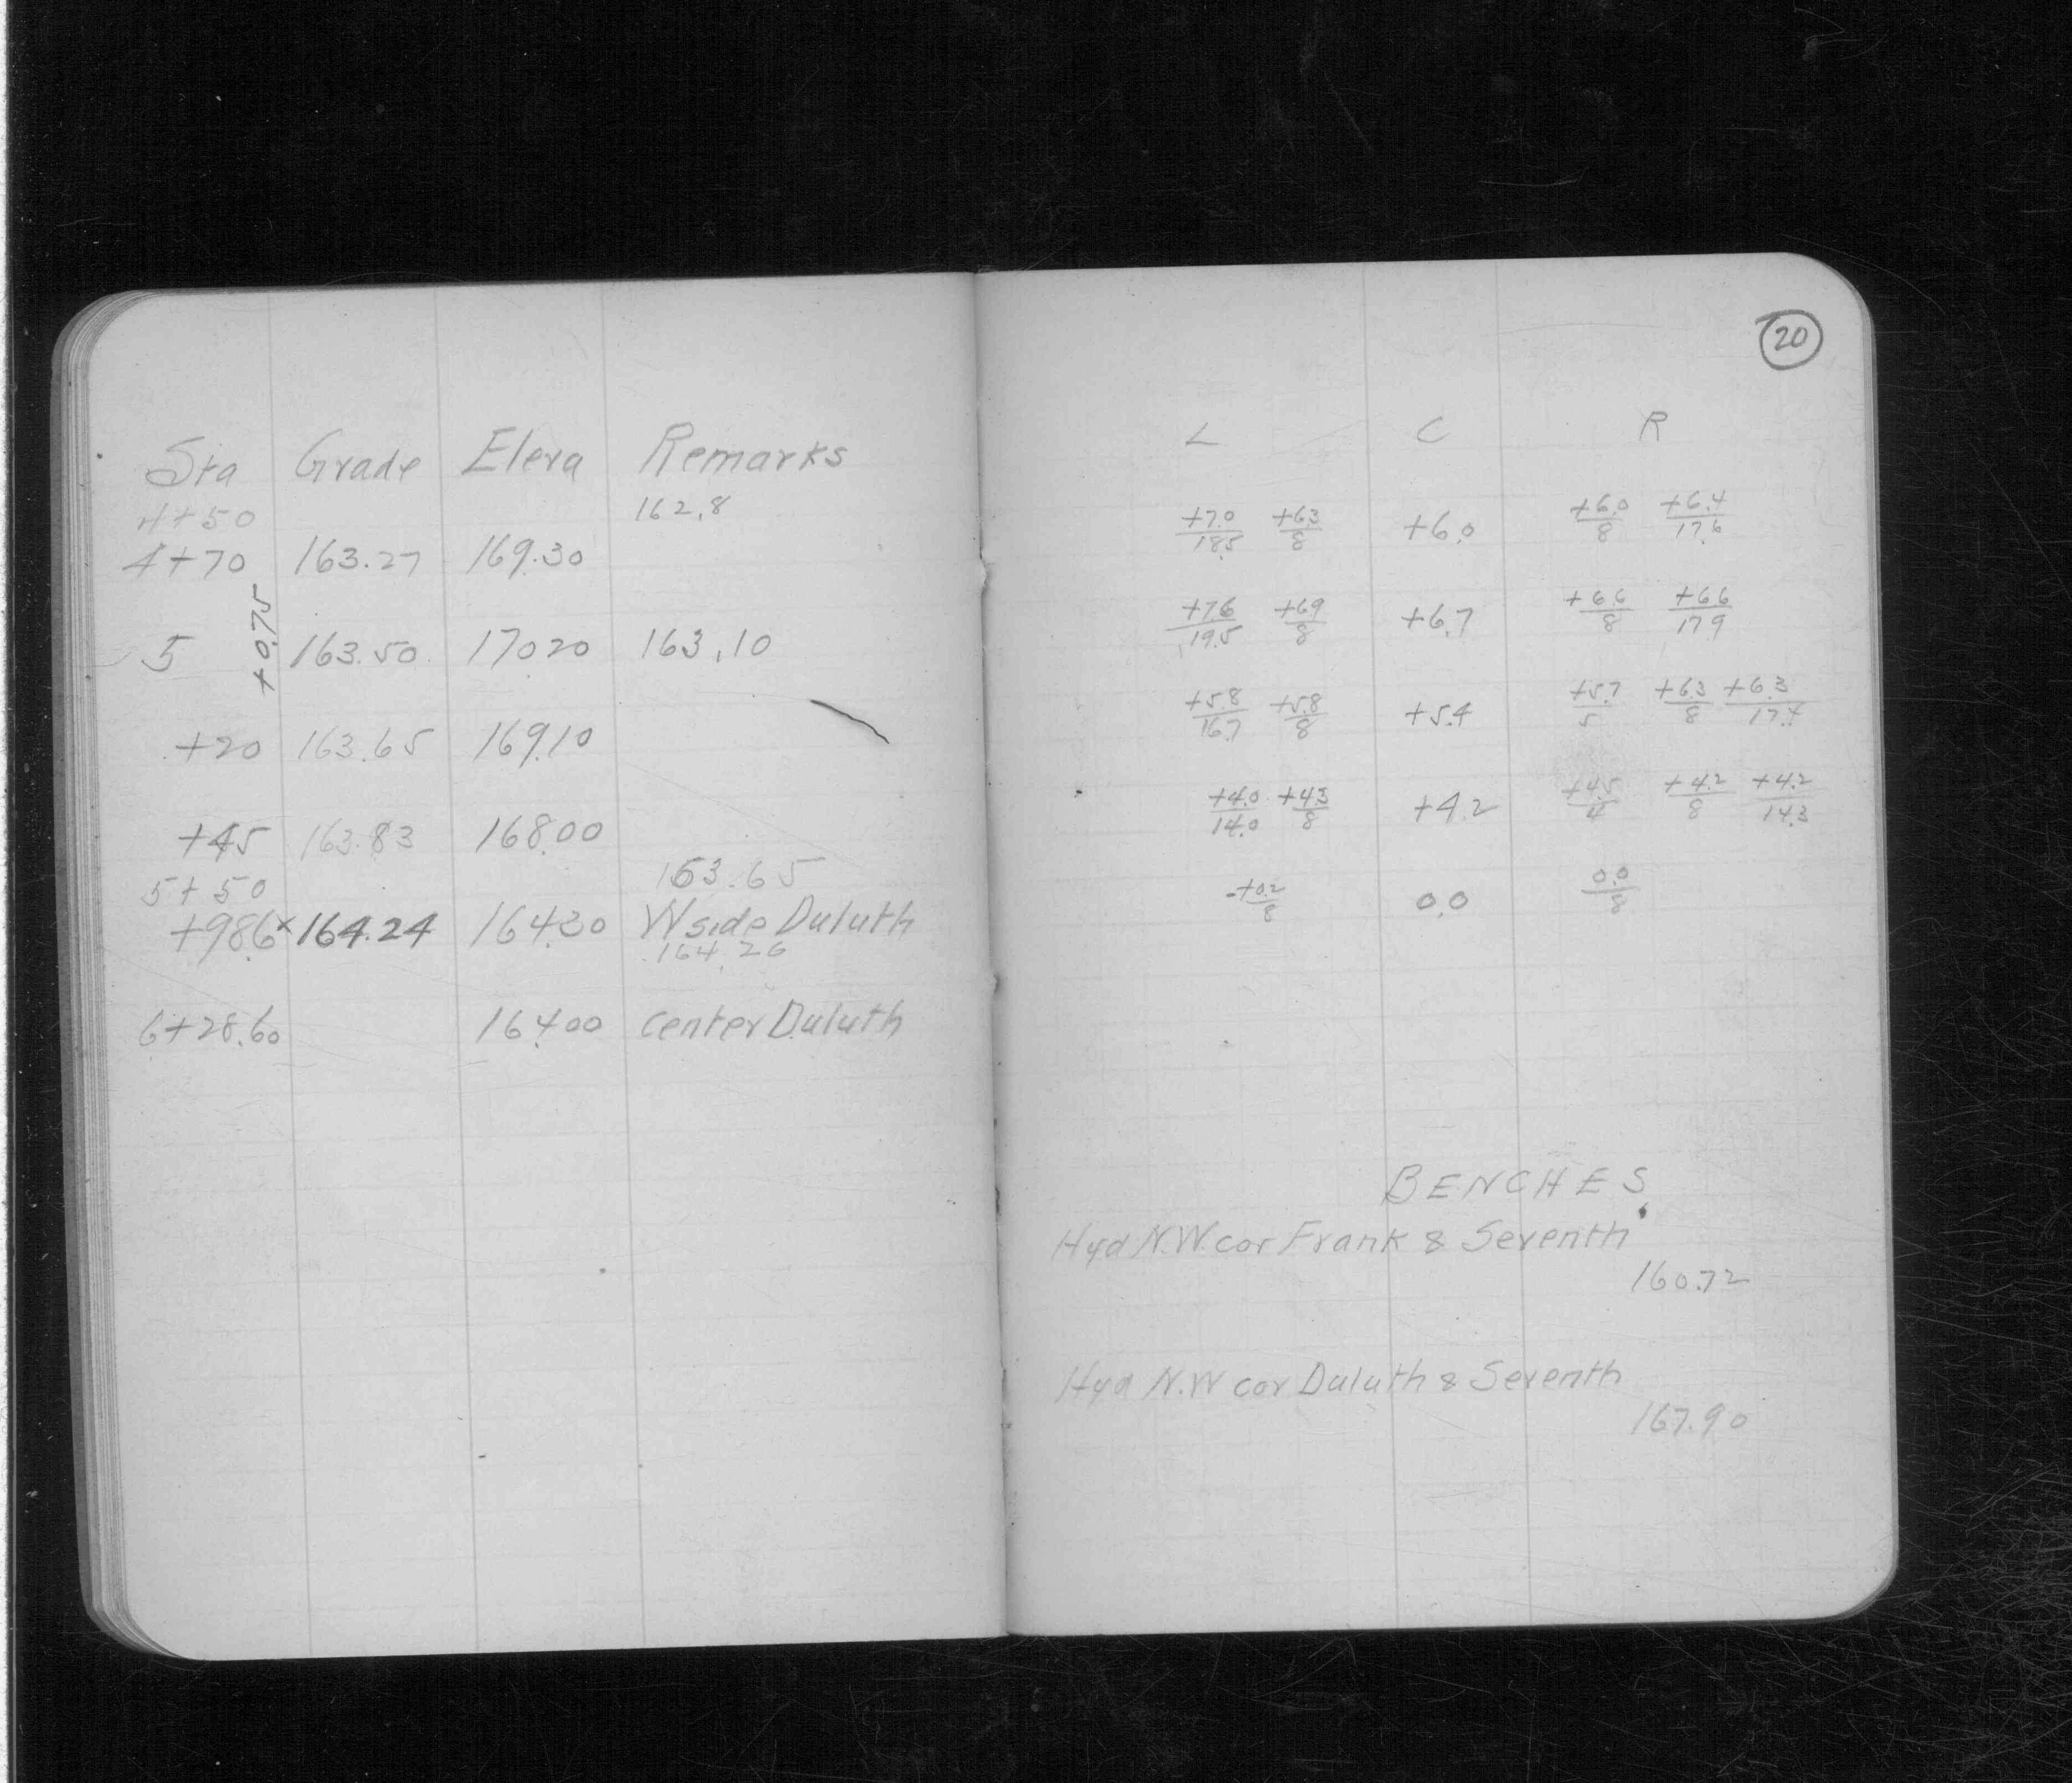 Sta Grade Eleva Remarks
4+50 162.8
4+70 163.27 169.30
+0.75
5 163.50 170.20 163.10
+20 163.65 169.10
+45 163.83 168.00
5+50 163.65
+98.6 x 164.24 164.30 W side Duluth
164.26
6+28.60 164.00 Center Duluth
20
L C R
+7.0/18.5 +6.3/8 +6.0 +6.0/8 +6.4/17.6
+7.6/19.5 +6.9/8 +6.7 +6.6/8 +6.6/17.9
+5.8/16.7 +5.8/8 +5.4 +5.7/5 +6.3/8 +6.3/17.4
+4.0/14.0 +4.3/8 +4.2 +4.5/4 +4.2/8 +4.2/14.3
+0.2/8 0.0 0.0/8
BENCHES
Hyd N.W. cor Frank & Seventh
160.72
Hyd N.W cor Duluth & Seventh
167.90